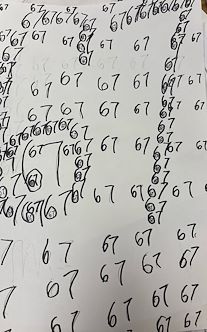 67 67 67 67 67 67 67 67
67 67 67 67 67 67
67 67 67 67 67
67 67 67 67 67 67
67 67 67 67 67 67
67 67 67 67 67 67 67
67 67 67 67 67 67
67 67 67 67 67 67
67 67 67 67 67 67 67
67 67 67 67
67 67 67 67
67 67 67 67
67 67 67